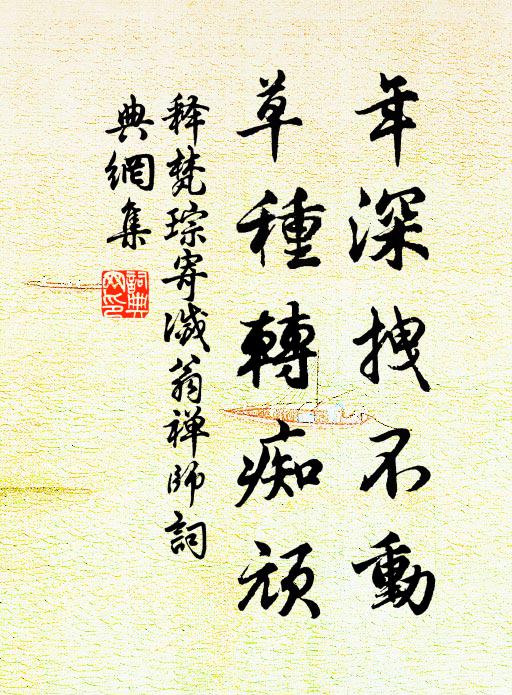 年深拽不動
草種轉痴頑
释梵琮寄滅翁禅師詞
典網集
詞典網印